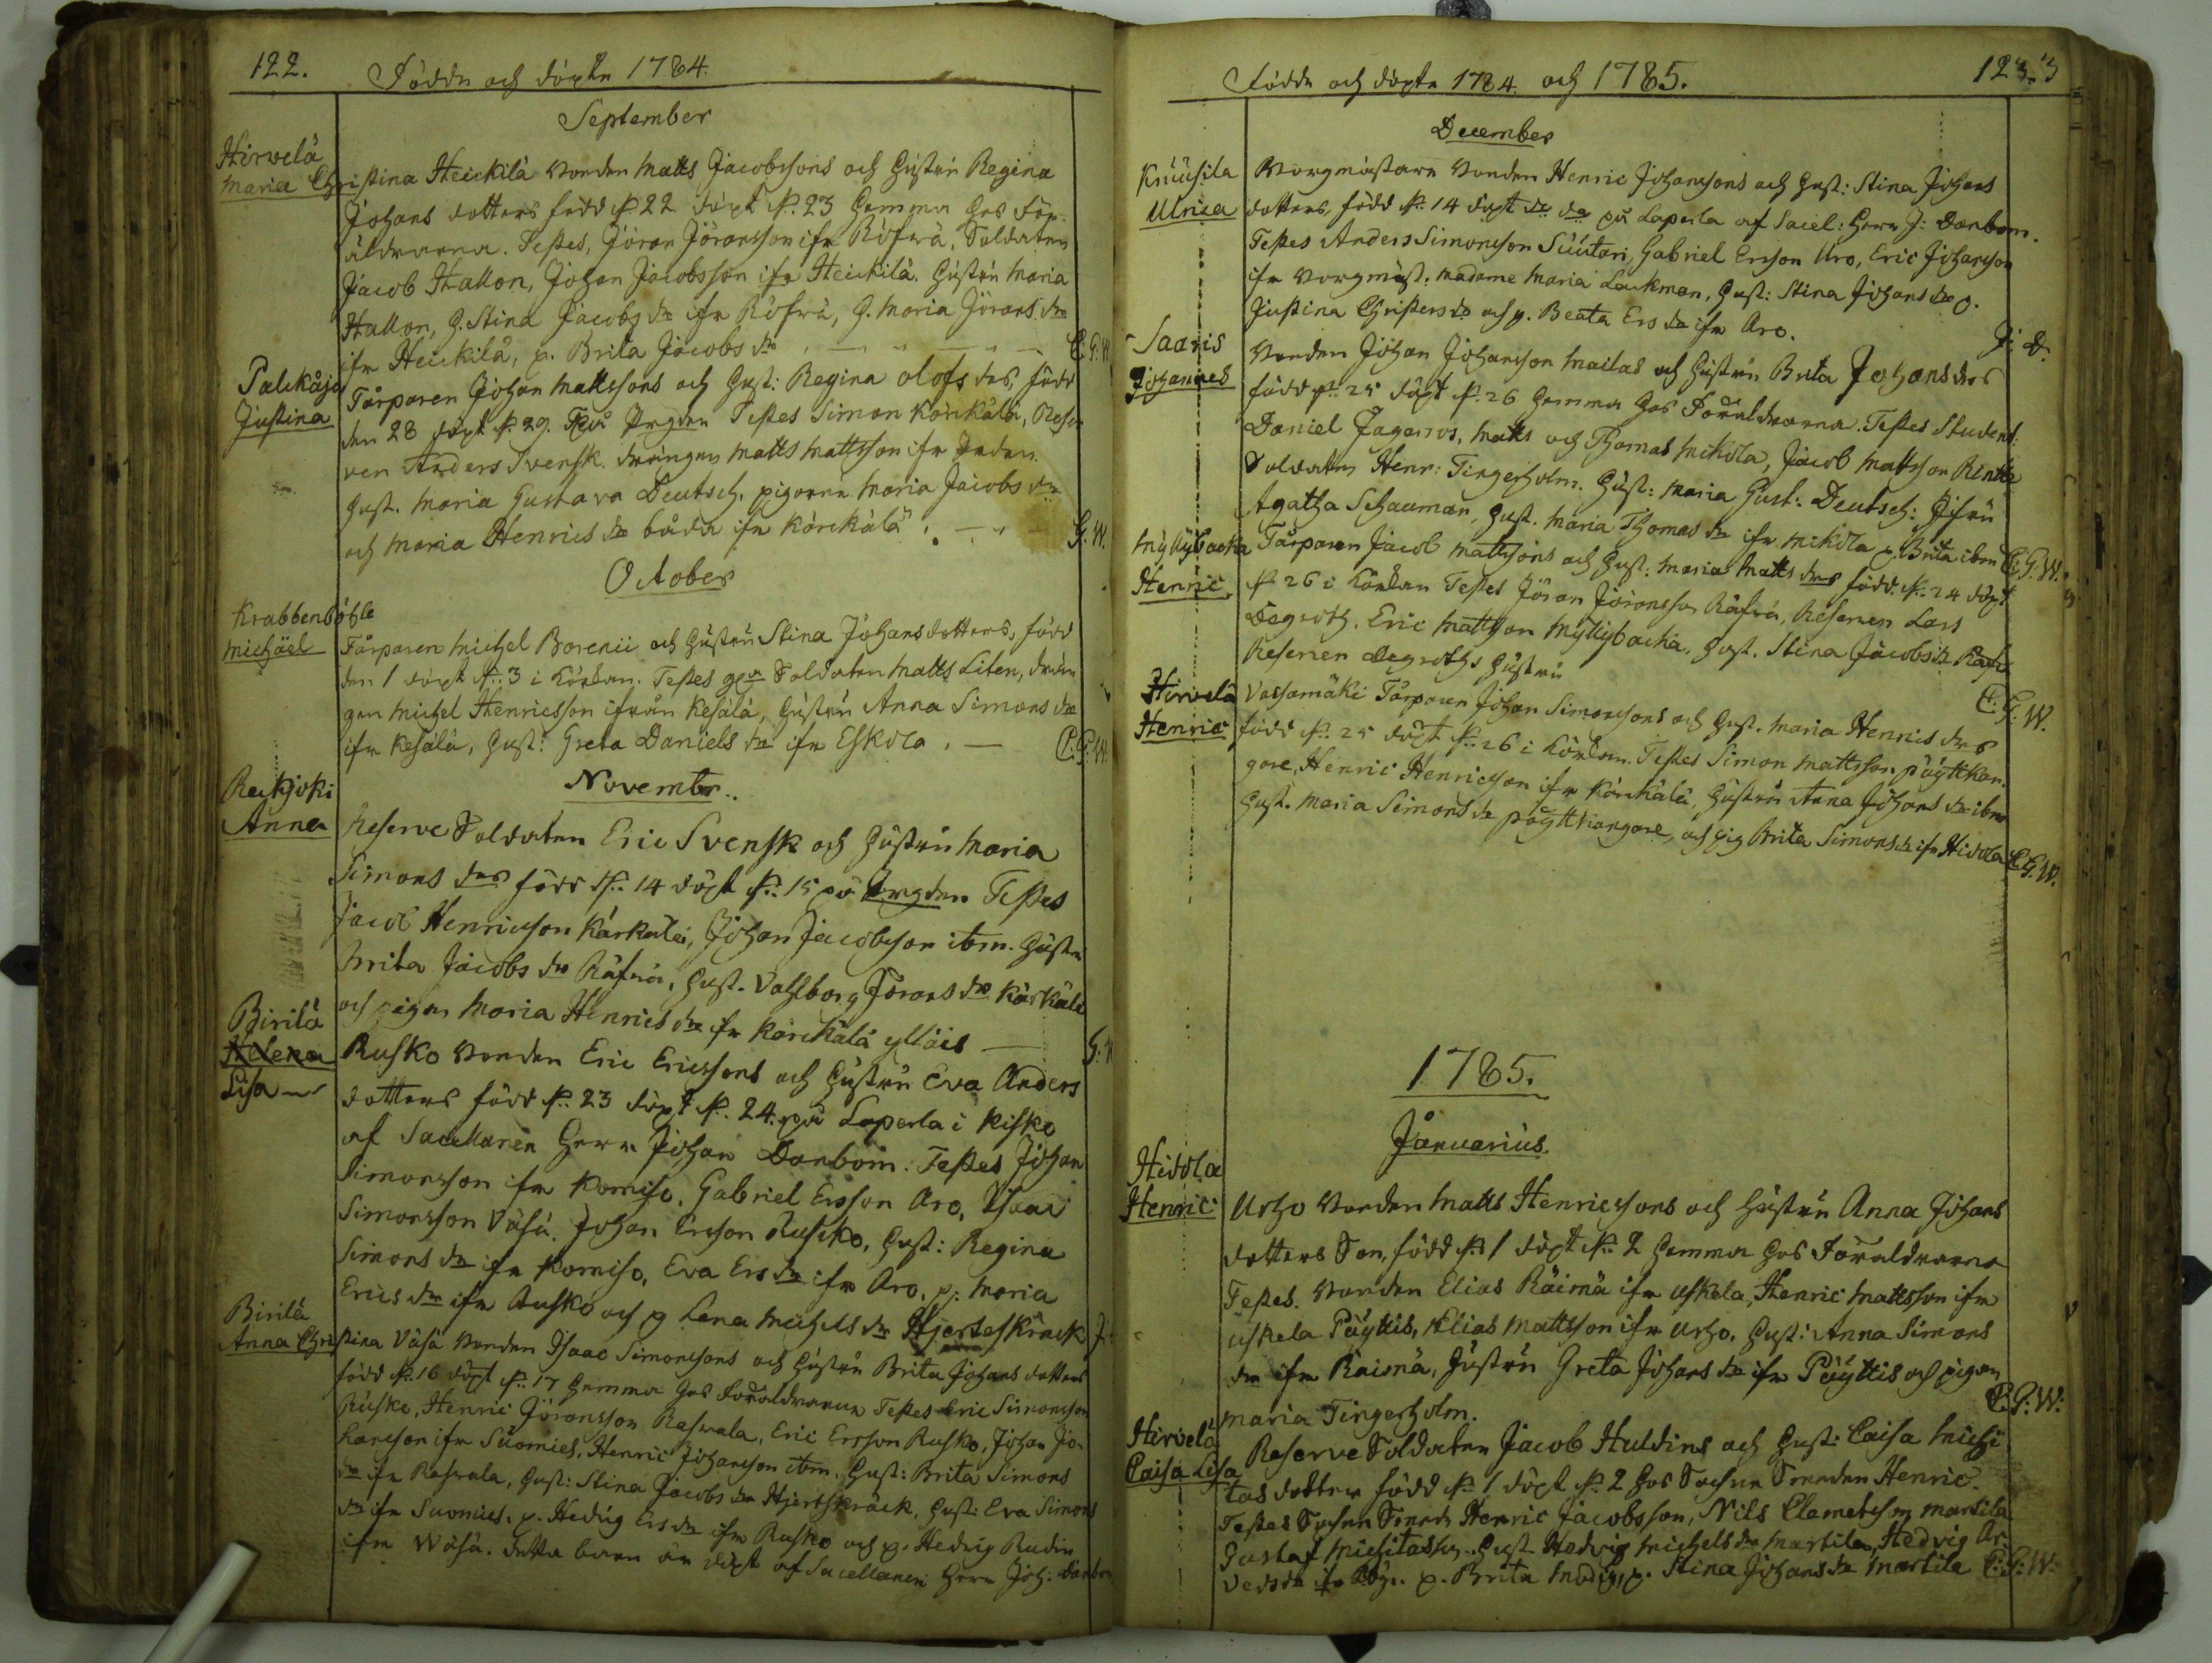 122. Födde och döpte 1784.
September
Hirvelä
Maria Christina Heickilä Bonden Matts Jacobssons och Hustru Regina
Johans dotters född d. 22 döpt d. 23 hemma hos för-
äldrarna. Testes, Jöran Jöransson ifr Röfvä, Soldaten
Jacob Hallon, Johan Jacobsson ifr Heickilä. Hustru Maria
Hallon, H. Stina Jacobs dr ifr Röfvä, H. Maria Jörans dr
ifr Heickilä, p. Brita Jacobs dr C. G. W.
Palikäjä
Justina
Torparen Johan Mattssons och Hust: Regina Olofs drs, född
den 28 döpt d. 29. Testes Simon Kärckälä, Reser
ven Anders Svensk. drängen Matts Mattsson ifr
Hust. Maria Gustava Deutsch. pigorna Maria Jacobs dr
och Maria Henrics dr båda ifr Kärckälä. G. W.
October
Krabbenböhle
Michäel
Torparen Michel Borenii och Hustru Stina Johansdotters, född
den 1 döpt d. 3 i Körkan. Testes Soldaten Matts Liten, drän
gen Michel Henricsson ifrån Kesälä, Hustru Anna Simons dr
ifr Kesälä, Hust: Greta Daniels dr ifr Eskola. C. G. W.
November.
Reckjoki
Anna
Reserve Soldaten Eric Svensk och Hustru Maria
Simons drs född d. 14 döpt d. 15 på Testes
Jacob Henricsson Kärkälä, Johan Jacobsson ibm. Hustru
Brita Jacobs dr Räfvä, Hust. Valborg Jörans dr Kärkälä
och pigan Maria Henrics dr ifr Kärckälä ylläis G. W.
Birilä
Helena
Lisa
Rusko Bonden Eric Ericssons och Hustru Eva Anders
dotters född d. 23 döpt d. 24. på Laperla i Kisko
af Sacellanen Herr Johan Danbom: Testes Johan
Simonsson ifr Komiso, Gabriel Ersson Aro, Isaac
Simonsson Väsä. Johan Ersson Rusko, Hust: Regina
Simons dr ifr Komiso, Eva Ers dr ifr Aro, p. Maria
Erics dr ifr Rusko och p Lena Michels dr Hjerteskräck J:
Birilä
Anna Christina Väsä Bonden Isaac Simonssons och Hustru Brita Johans dotters
född d. 16 döpt d. 17 hemma hos Föräldrarna Testes Eric Simonsson
Rusko, Henric Jöransson Rasvala, Eric Ersson Rusko, Johan Jo-
hansson ifr Suomies, Henric Johansson ibm. Hust: Brita Simons
dr ifr Rasvala, Hust: Stina Jacobs dr Hjertskräck, Hust: Eva Simons
dr ifr Suomies. p. Hedvig Ers dr ifr Rusko och p. Hedvig Rudin
ifr Wäsä. detta barn är döpt af Sacellanen Herr Joh: Danbom
Födde och döpte 1784. och 1785. 123.
December
Kruusila
Ulrica
Borgmästare Bonden Henric Johanssons och Hust: Stina Johans
dotters, född d. 14 döpt på Laperla af Sacel: Herr J: Danbom.
Testes Anders Simonsson Suutari, Gabriel Ersson Aro, Eric Johansson
ifr Borgmäst. Madame Maria Lackman, Hust: Stina Johans dr
Justina Christers dr och p. Beata Ers dr ifr Aro. J: D.
Saaris
Johannes
Bonden Johan Johansson Mailas och Hustru Brita Johans drs
född d. 25 döpt d. 26 hemma hos Föräldrarna. Testes Student.
Daniel Fagerros, Matts och Thomas Mikola, Jacob Mattsson Rintla
Soldaten Henr: Tingerholm. Hust: Maria Gust: Deutsch: Jfru
Agatha Schauman, Hust. Maria Thomas dr ifr Mikola p. Brita ibm C: G: W.
Myllybacka
Henric
Torparen Jacob Mattssons och Hust: Maria Matts drs född d. 24 döpt
d. 26 i Körkan Testes Jöran Jöransson Räfvä, Reserven Lars
Degroth. Eric Mattsson Myllybacka. Hust. Stina Jacobs dr Räfvä
Reserven Degroths Hustru C. G. W.
Hirvelä
Henric
Vassamäki Torparen Johan Simonssons och Hust. Maria Henrics drs
född d. 25 döpt d. 26 i Körkan. Testes Simon Mattsson Päytikan-
gare, Henric Henricsson ifr Kärckälä, Hustru Anna Johans dr ibm
Hust. Maria Simons dr Päytikangare, och pig Brita Simons dr ifr Hidola C. G. W.
1785.
Januarius.
Hidola
Henric
Urho Bonden Matts Henricssons och Hustru Anna Johans
dotters Son, född d. 1 döpt d. 2 hemma hos Föräldrarna
Testes. Bonden Elias Räimä ifr Uskela, Henric Mattsson ifr
Uskela Päyttis, Elias Mattsson ifr Urho, Hust: Anna Simons
dr ifr Raimä, Hustru Greta Johans dr ifr Päyttis och pigan
Maria Tingerholm. C. G. W.
Hirvelä
Caisa Lisa
Reserve Soldaten Jacob Huldins och Hust: Caisa Michi
tas dotter född d. 1 döpt d. 2 hos Sochne Smeden Henric.
Testes Sochne Smed Henric Jacobsson, Nils Clemetsson Martila
Gustaf Michitasson. Hust Hedvig Michels dr Martila, Hedvig Ar-
veds dr p. Brita p. Stina Johans dr Martila C. G. W.